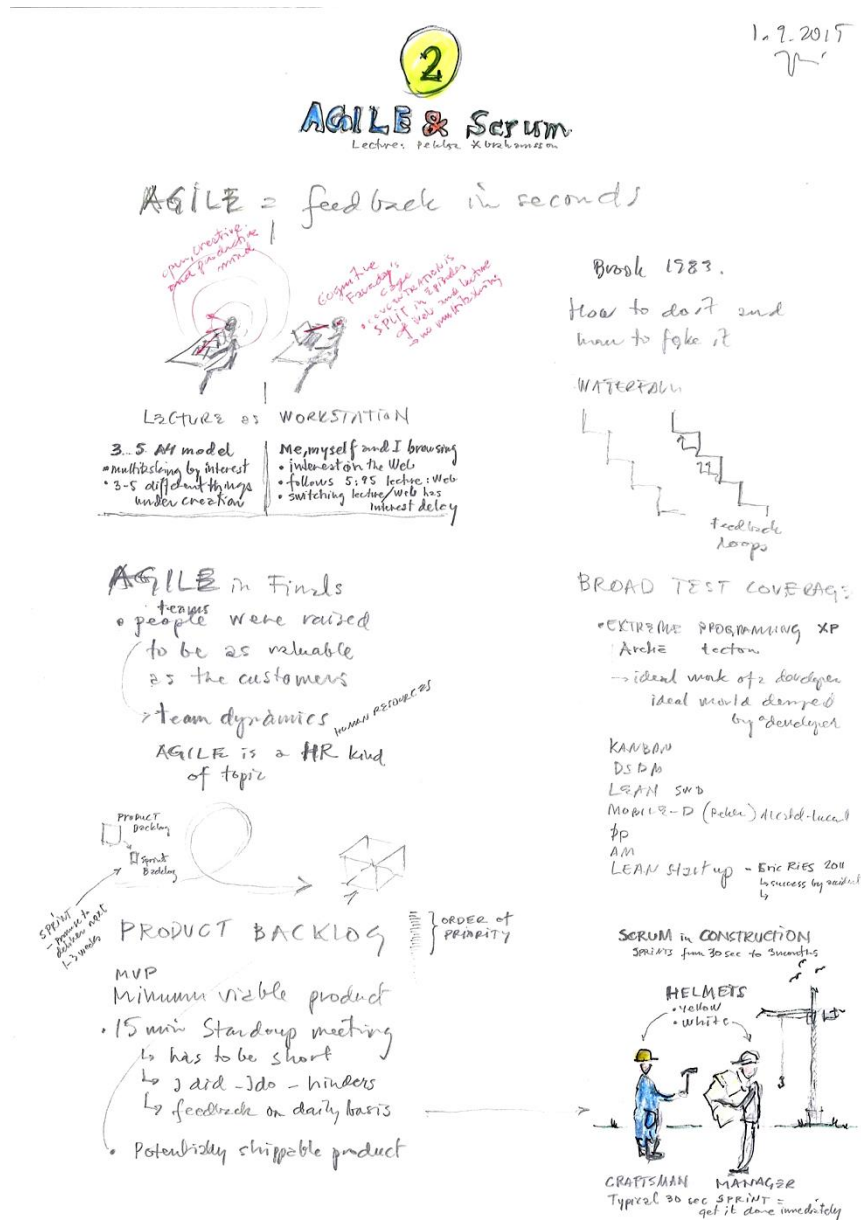 1.9.2015
2
AGILE & Scrum
Lecture: Pekka Abrahamsson
AGILE = feedback in seconds
open, creative
and productive
mind
Cognitive
Faraday's
cage
CONCENTRATION is
SPLIT in EPISODES
of web and lecture
→ no multitasking
LECTURE as WORKSTATION
3...5 A4 model
• multitasking by interest
• 3-5 different things
under creation
Me, myself and I browsing
• interest on the Web
• follows 5:95 lecture:Web
• switching lecture/Web has
interest delay
AGILE in Finals
teams
• people were raised
to be as valuable
as the customers
→ team dynamics HUMAN RESOURCES
AGILE is a HR kind
of topic
PRODUCT
Backlog
Sprint
Backlog
SPRINT
- promise to
deliver next
1-3 weeks
PRODUCT BACKLOG
ORDER of
PRIORITY
MVP
Minimum viable product
• 15 min Standup meeting
↳ has to be short
↳ I did - I do - hinders
↳ feedback on daily basis
• Potentially shippable product
Brook 1983.
How to do it and
how to fake it
WATERFALL
feedback
loops
BROAD TEST COVERAGE
• EXTREME PROGRAMMING XP
Arche tecton
→ ideal work of a developer
ideal world
by a developer
KANBAN
DSDM
LEAN SWD
MOBILE-D (Pekka)
PP
AM
LEAN Startup - Eric RIES 2011
↳ success by
SCRUM in CONSTRUCTION
SPRINTS from 30 sec to 3 months
HELMETS
• yellow
• white
CRAFTSMAN
MANAGER
Typical 30 sec SPRINT =
get it done immediately